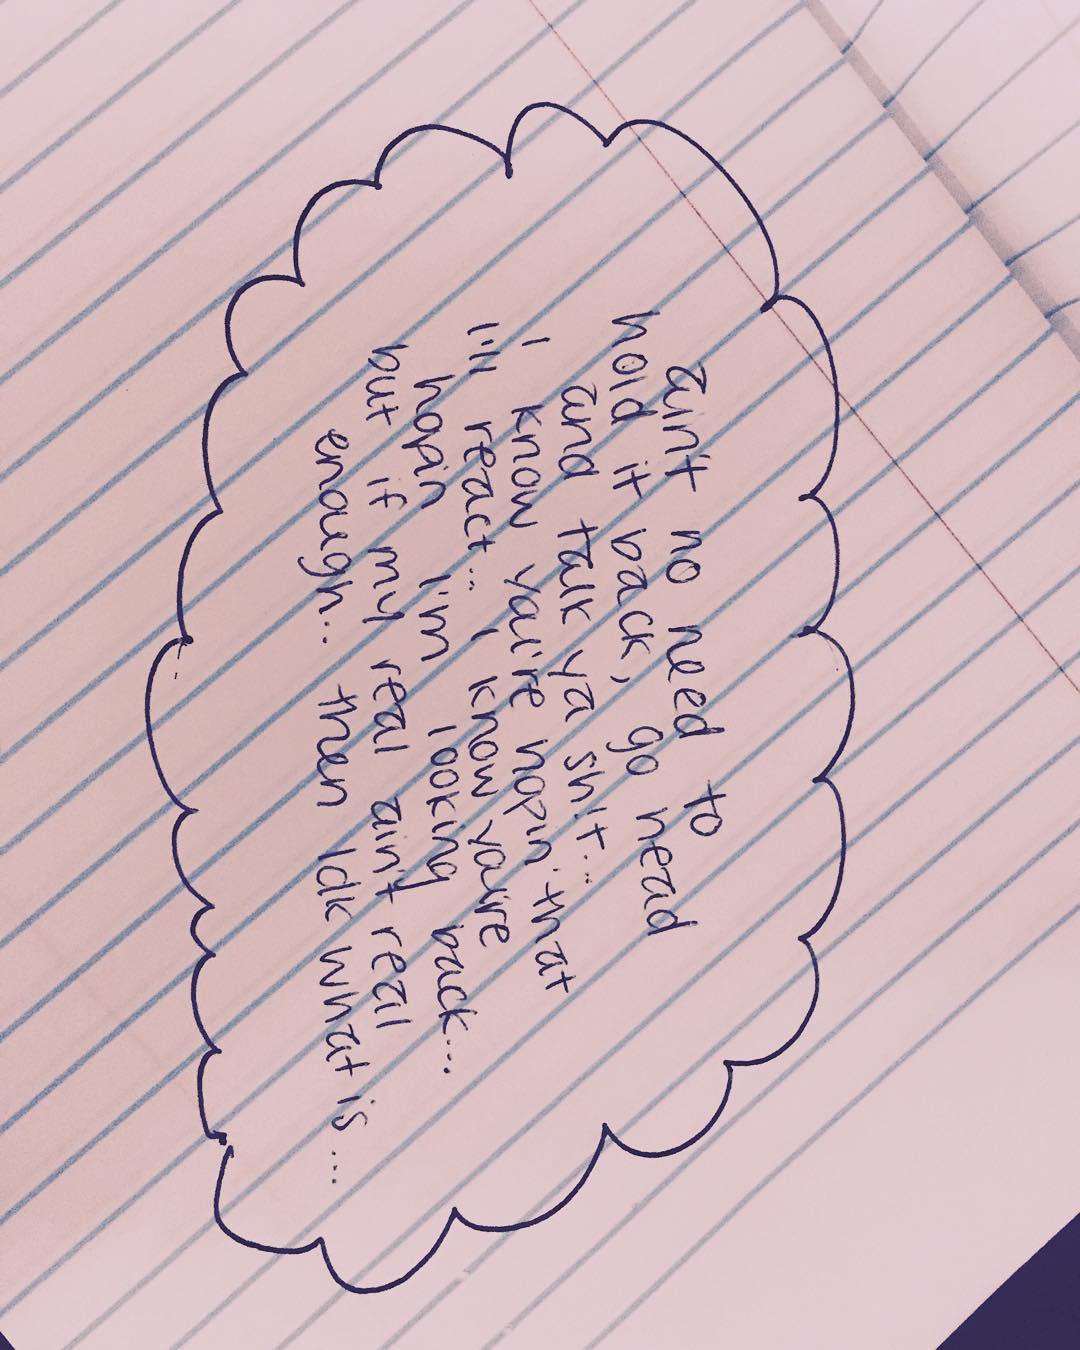 ain't no need to
hold it back, go head
and talk ya sh!t...
I know you're hopin' that
I'll react... I know you're
hopin I'm looking back...
but if my real ain't real
enough.. then Idk what is ...